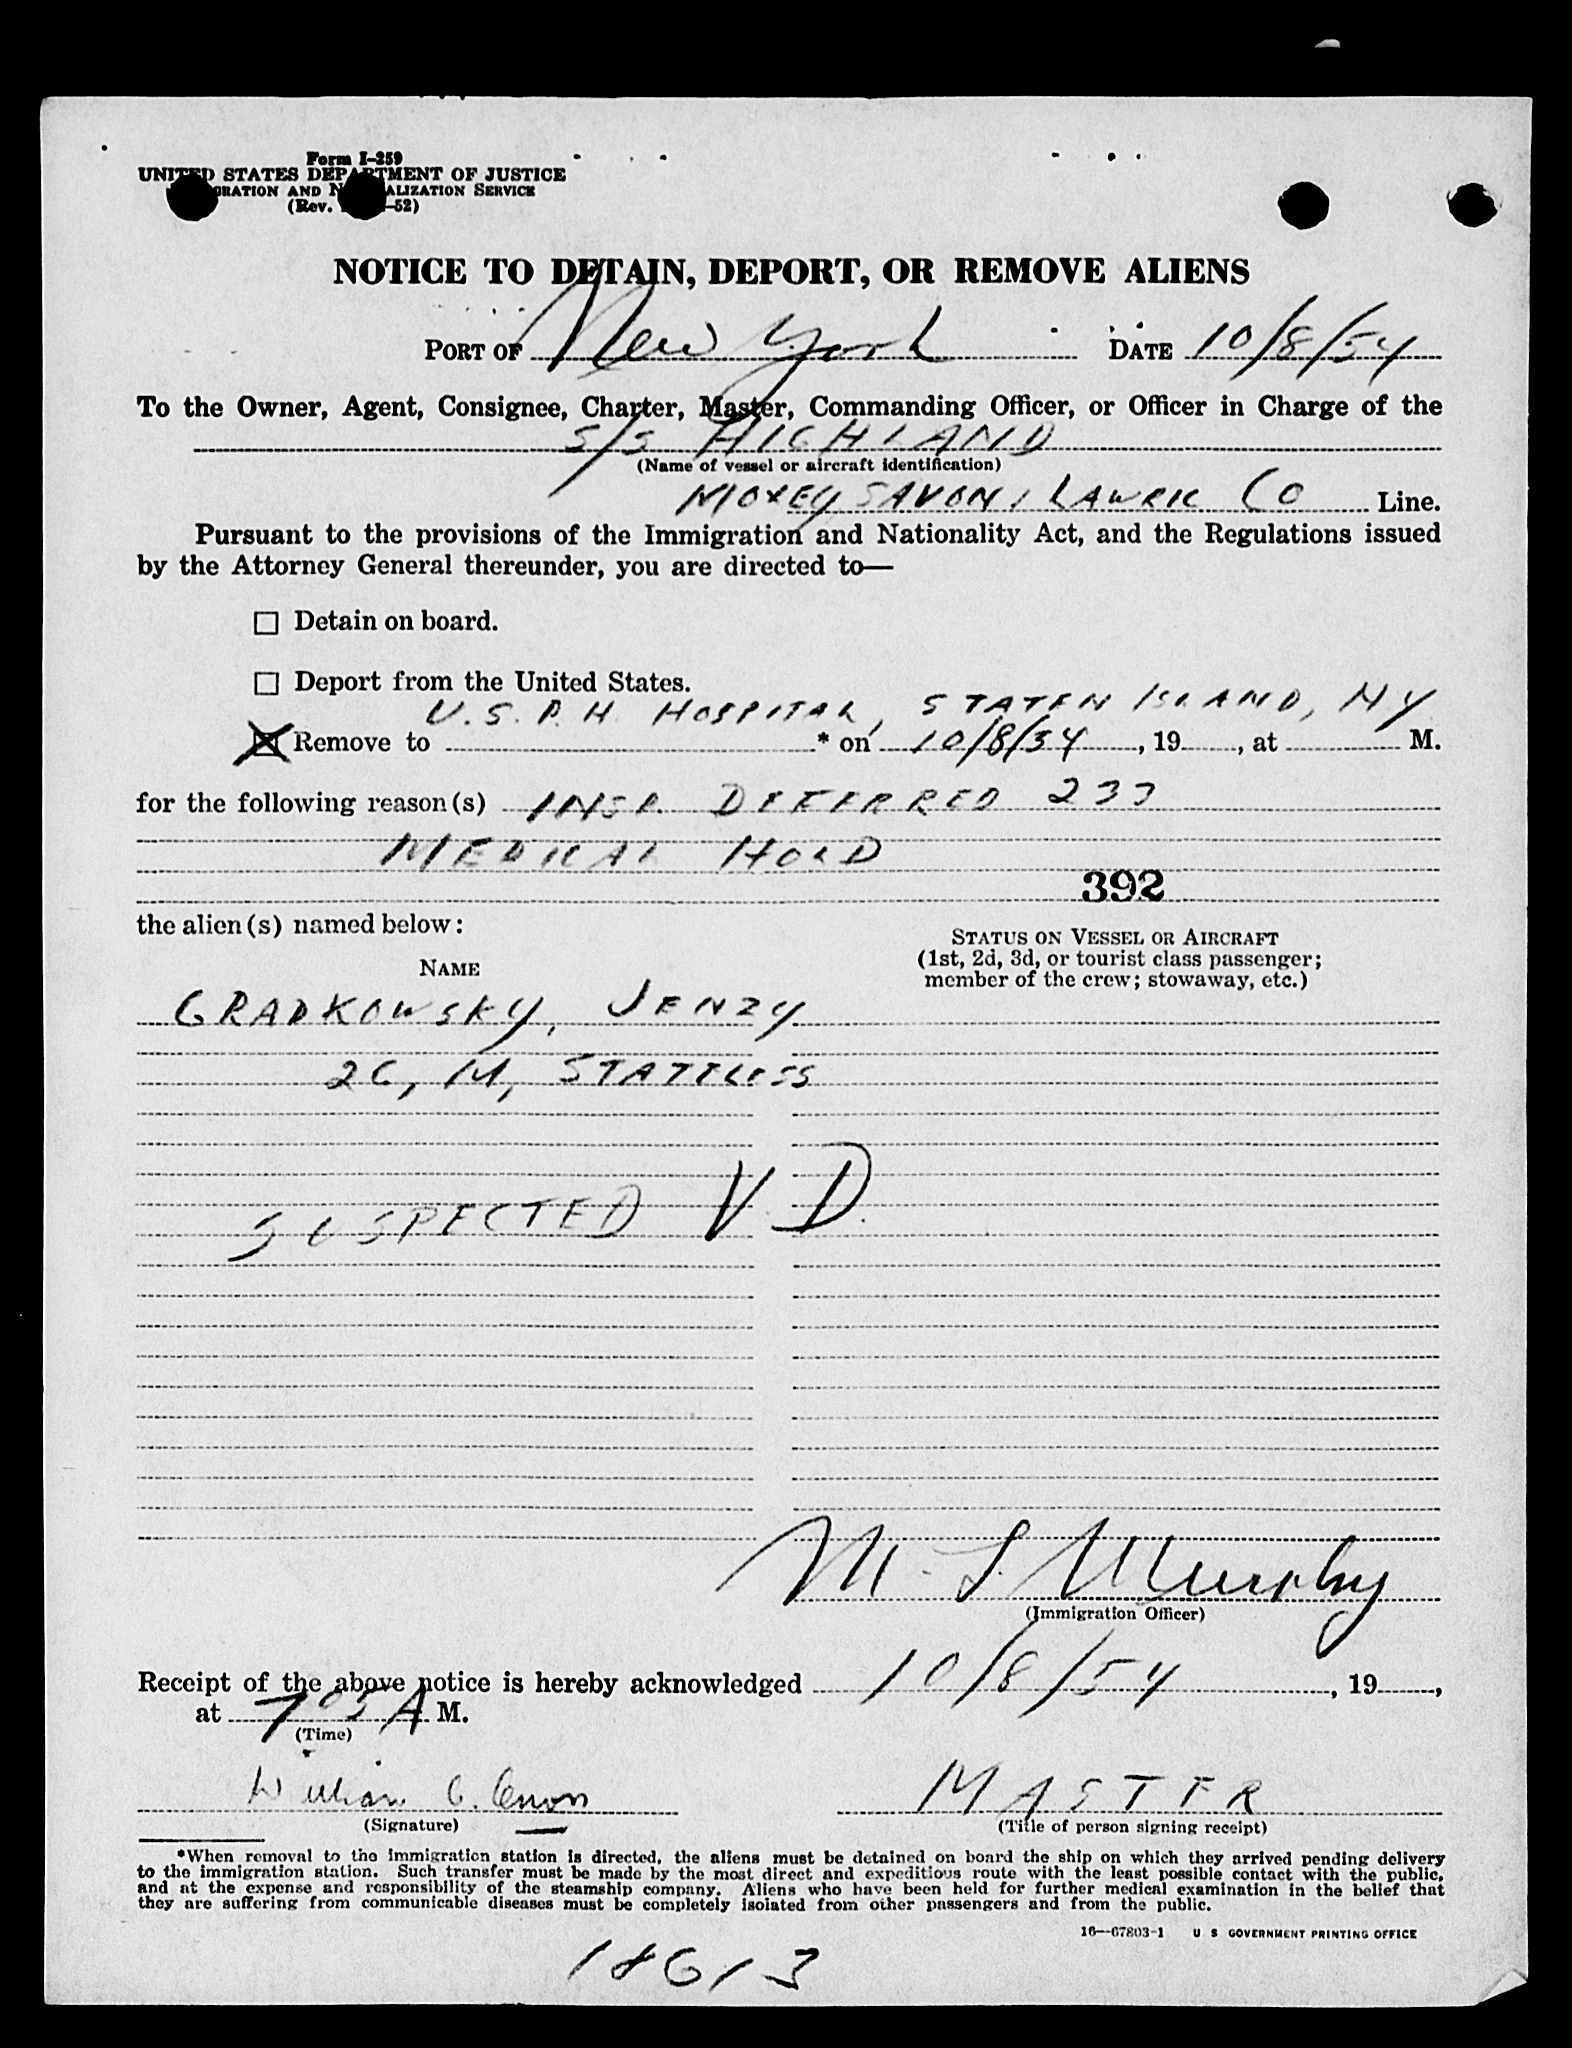 Form I-259
UNITED STATES DEPARTMENT OF JUSTICE
IMMIGRATION AND NATURALIZATION SERVICE
(Rev. -52)
NOTICE TO DETAIN, DEPORT, OR REMOVE ALIENS
PORT OF New York DATE 10/8/54
To the Owner, Agent, Consignee, Charter, Master, Commanding Officer, or Officer in Charge of the
S/S HIGHLAND
(Name of vessel or aircraft identification)
MOXEY SAVON, LAWRIC CO Line.
Pursuant to the provisions of the Immigration and Nationality Act, and the Regulations issued
by the Attorney General thereunder, you are directed to—
Detain on board.
Deport from the United States.
U.S.P.H. HOSPITAL, STATEN ISLAND, NY
Remove to * on 10/8/54, 19, at M.
for the following reason(s) INSP. DEFERRED 233
MEDICAL HOLD
392
the alien(s) named below:
STATUS ON VESSEL OR AIRCRAFT
(1st, 2d, 3d, or tourist class passenger;
member of the crew; stowaway, etc.)
NAME
GRADKOWSKY, JENZY
26, M, STATELESS
SUSPECTED V.D.
M. J. Murphy
(Immigration Officer)
Receipt of the above notice is hereby acknowledged 10/8/54, 19,
at 7 05 A M.
(Time)
William C.
MASTER
(Signature)
(Title of person signing receipt)
*When removal to the immigration station is directed, the aliens must be detained on board the ship on which they arrived pending delivery
to the immigration station. Such transfer must be made by the most direct and expeditious route with the least possible contact with the public,
and at the expense and responsibility of the steamship company. Aliens who have been held for further medical examination in the belief that
they are suffering from communicable diseases must be completely isolated from other passengers and from the public.
16—67803-1 U S GOVERNMENT PRINTING OFFICE
18613